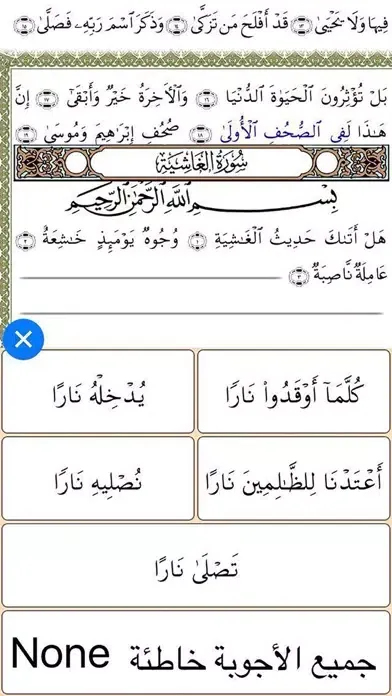 فِيهَا وَلَا يَحْيَىٰ ١٣ قَدْ أَفْلَحَ مَن تَزَكَّىٰ ١٤ وَذَكَرَ ٱسْمَ رَبِّهِۦ فَصَلَّىٰ ١٥
بَلْ تُؤْثِرُونَ ٱلْحَيَوٰةَ ٱلدُّنْيَا ١٦ وَٱلْأَخِرَةُ خَيْرٌ وَأَبْقَىٰٓ ١٧ إِنَّ
هَـٰذَا لَفِى ٱلصُّحُفِ ٱلْأُولَىٰ ١٨ صُحُفِ إِبْرَٰهِيمَ وَمُوسَىٰ ١٩
سُورَةُ الغَاشِيَةِ
بِسْمِ ٱللَّهِ ٱلرَّحْمَٰنِ ٱلرَّحِيمِ
هَلْ أَتَىٰكَ حَدِيثُ ٱلْغَـٰشِيَةِ ١ وُجُوهٌ يَوْمَئِذٍ خَـٰشِعَةٌ ٢
عَامِلَةٌ نَّاصِبَةٌ ٣
كُلَّمَآ أَوْقَدُوا۟ نَارًا
يُدْخِلْهُ نَارًا
أَعْتَدْنَا لِلظَّـٰلِمِينَ نَارًا
نُصْلِيهِ نَارًا
تَصْلَىٰ نَارًا
جميع الأجوبة خاطئة None